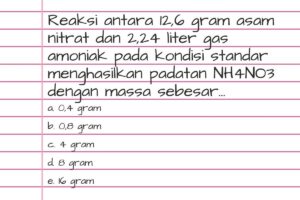 Reaksi antara 12,6 gram asam
nitrat dan 2,24 liter gas
amoniak pada kondisi standar
menghasilkan padatan NH4NO3
dengan massa sebesar...
a. 0,4 gram
b. 0,8 gram
c. 4 gram
d. 8 gram
e. 16 gram